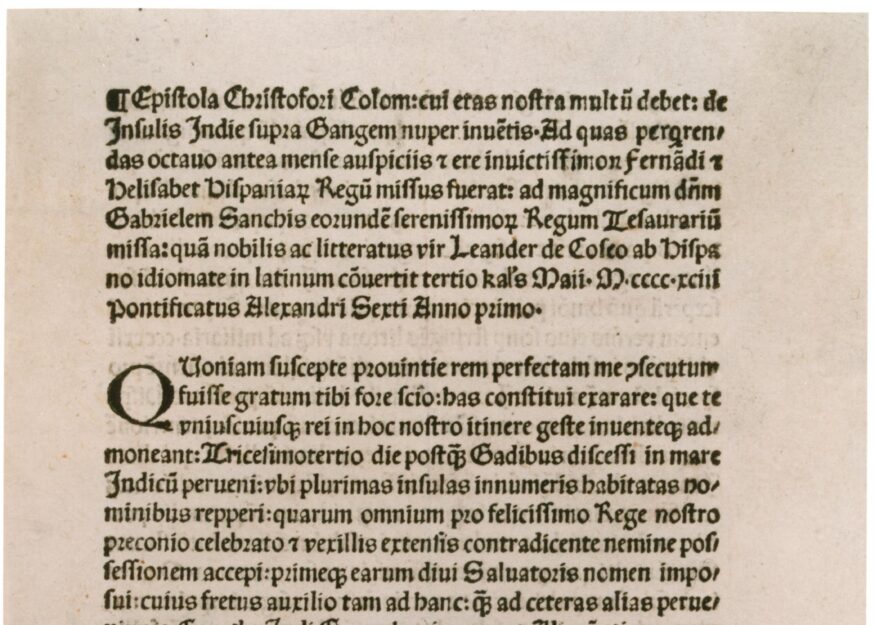 ¶Epistola Christofori Colom: cui etas nostra multũ debet: de
Insulis Indie supra Gangem nuper inuẽtis. Ad quas perqren/
das octauo antea mense auspiciis ⁊ ere inuictissimoꝝ Fernãdi ⁊
Helisabet Hispaniaꝝ Regũ missus fuerat: ad magnificum dñm
Gabrielem Sanchis eorundẽ serenissimoꝝ Regum Tesaurariũ
missa: quã nobilis ac litteratus vir Leander de Cosco ab Hispa
no idiomate in latinum cõuertit tertio kal's Maii. M.cccc.xciii
Pontificatus Alexandri Sexti Anno primo.
QUoniam suscepte prouintie rem perfectam me ꝯsecutum
fuisse gratum tibi fore scio: has constitui exarare: que te
vniuscuiusqꝫ rei in hoc nostro itinere geste inuenteqꝫ ad/
moneant: Tricesimotertio die postqꝫ̃ Gadibus discessi in mare
Indicũ perueni: vbi plurimas insulas innumeris habitatas ho/
minibus repperi: quarum omnium pro felicissimo Rege nostro
preconio celebrato ⁊ vexillis extensis contradicente nemine pos/
sessionem accepi: primeqꝫ earum diui Saluatoris nomen impo/
sui: cuius fretus auxilio tam ad hanc: qꝫ̃ ad ceteras alias perue/